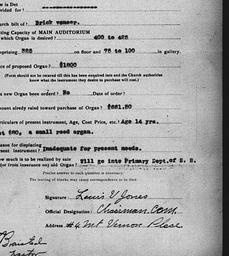 is Det
vided for?
arch built of? Brick veneer.
ting Capacity of MAIN AUDITORIUM
which Organ is desired? 400 to 425
mprising 325 on floor and 75 to 100 in gallery.
ice of proposed Organ? $1800
(Form should not be entered till this has been enquired into and the Church authorities
know what the instrument they desire to purchase will cost.)
s new Organ been ordered? No Date of order?
ount already raised toward purchase of Organ? $881.50
rticulars of present instrument, Age, Cost Price, etc.? Age 14 yrs.
st $80, a small reed organ.
ason for displacing
esent instrument? Inadequate for present needs.
ow much is to be realized by sale
(or from insurance on) old Organ? Will go into Primary Dept. of S. S.
Precise answer to each question is necessary.
The leaving of blanks may cause correspondence to be lost.
Signature: Louis V Jones
Official Designation: Chairman. Com.
Address #4 Mt Vernon Place
Pastor